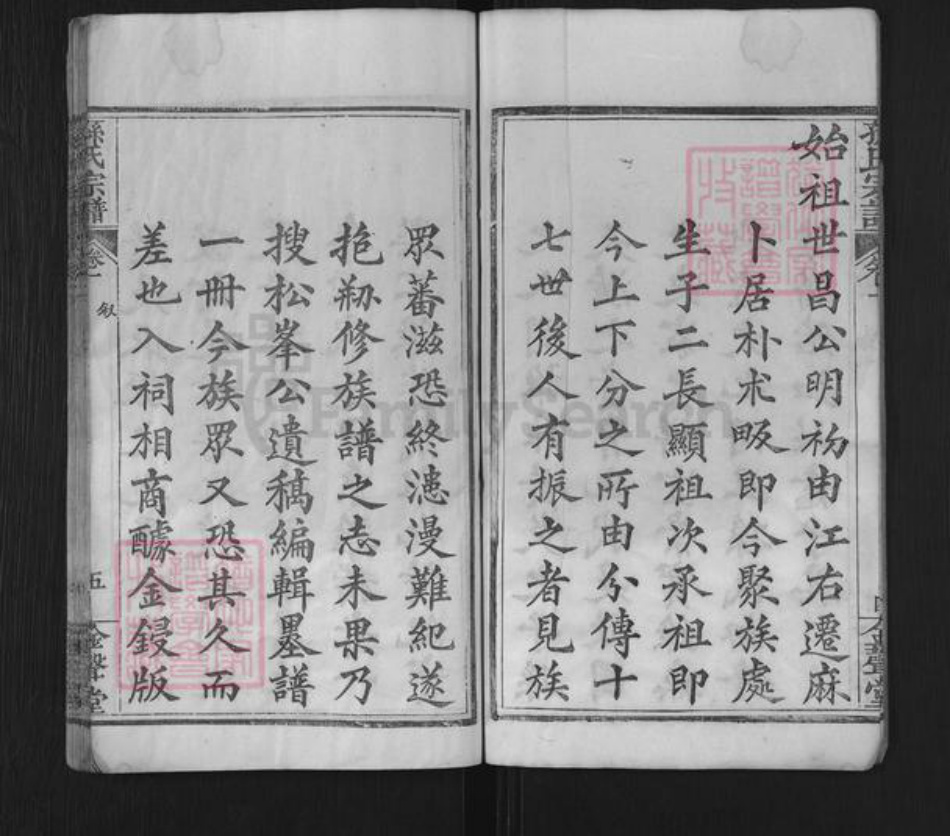 始祖世昌公明初由江右遷麻
卜居朴朮畈即今聚族處
生子二長顯祖次承祖即
今上下分之所由分傳十
七世後人有振之者見族
眾蕃滋恐終漶漫難紀遂
抱刱修族譜之志未果乃
搜松峯公遺稿編輯墨譜
一冊今族眾又恐其久而
差也入祠相商醵金鋟版
孫氏宗譜
卷一
敘
五
金聲堂
孫氏宗譜
卷一
金聲堂
FamilySearch